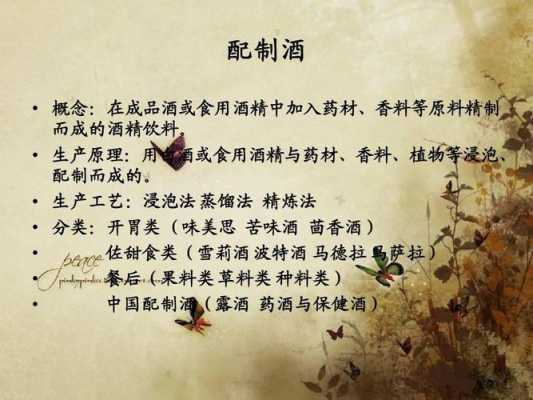 配制酒
• 概念：在成品酒或食用酒精中加入药材、香料等原料精制
而成的酒精饮料。
• 生产原理：用白酒或食用酒精与药材、香料、植物等浸泡、
配制而成的。
• 生产工艺：浸泡法 蒸馏法 精炼法
• 分类：开胃类（味美思 苦味酒 茴香酒）
• 佐甜食类（雪莉酒 波特酒 马德拉 马萨拉）
peace
• 餐后（ 果料类 草料类 种料类）
• 中国配制酒（露酒 药酒与保健酒）